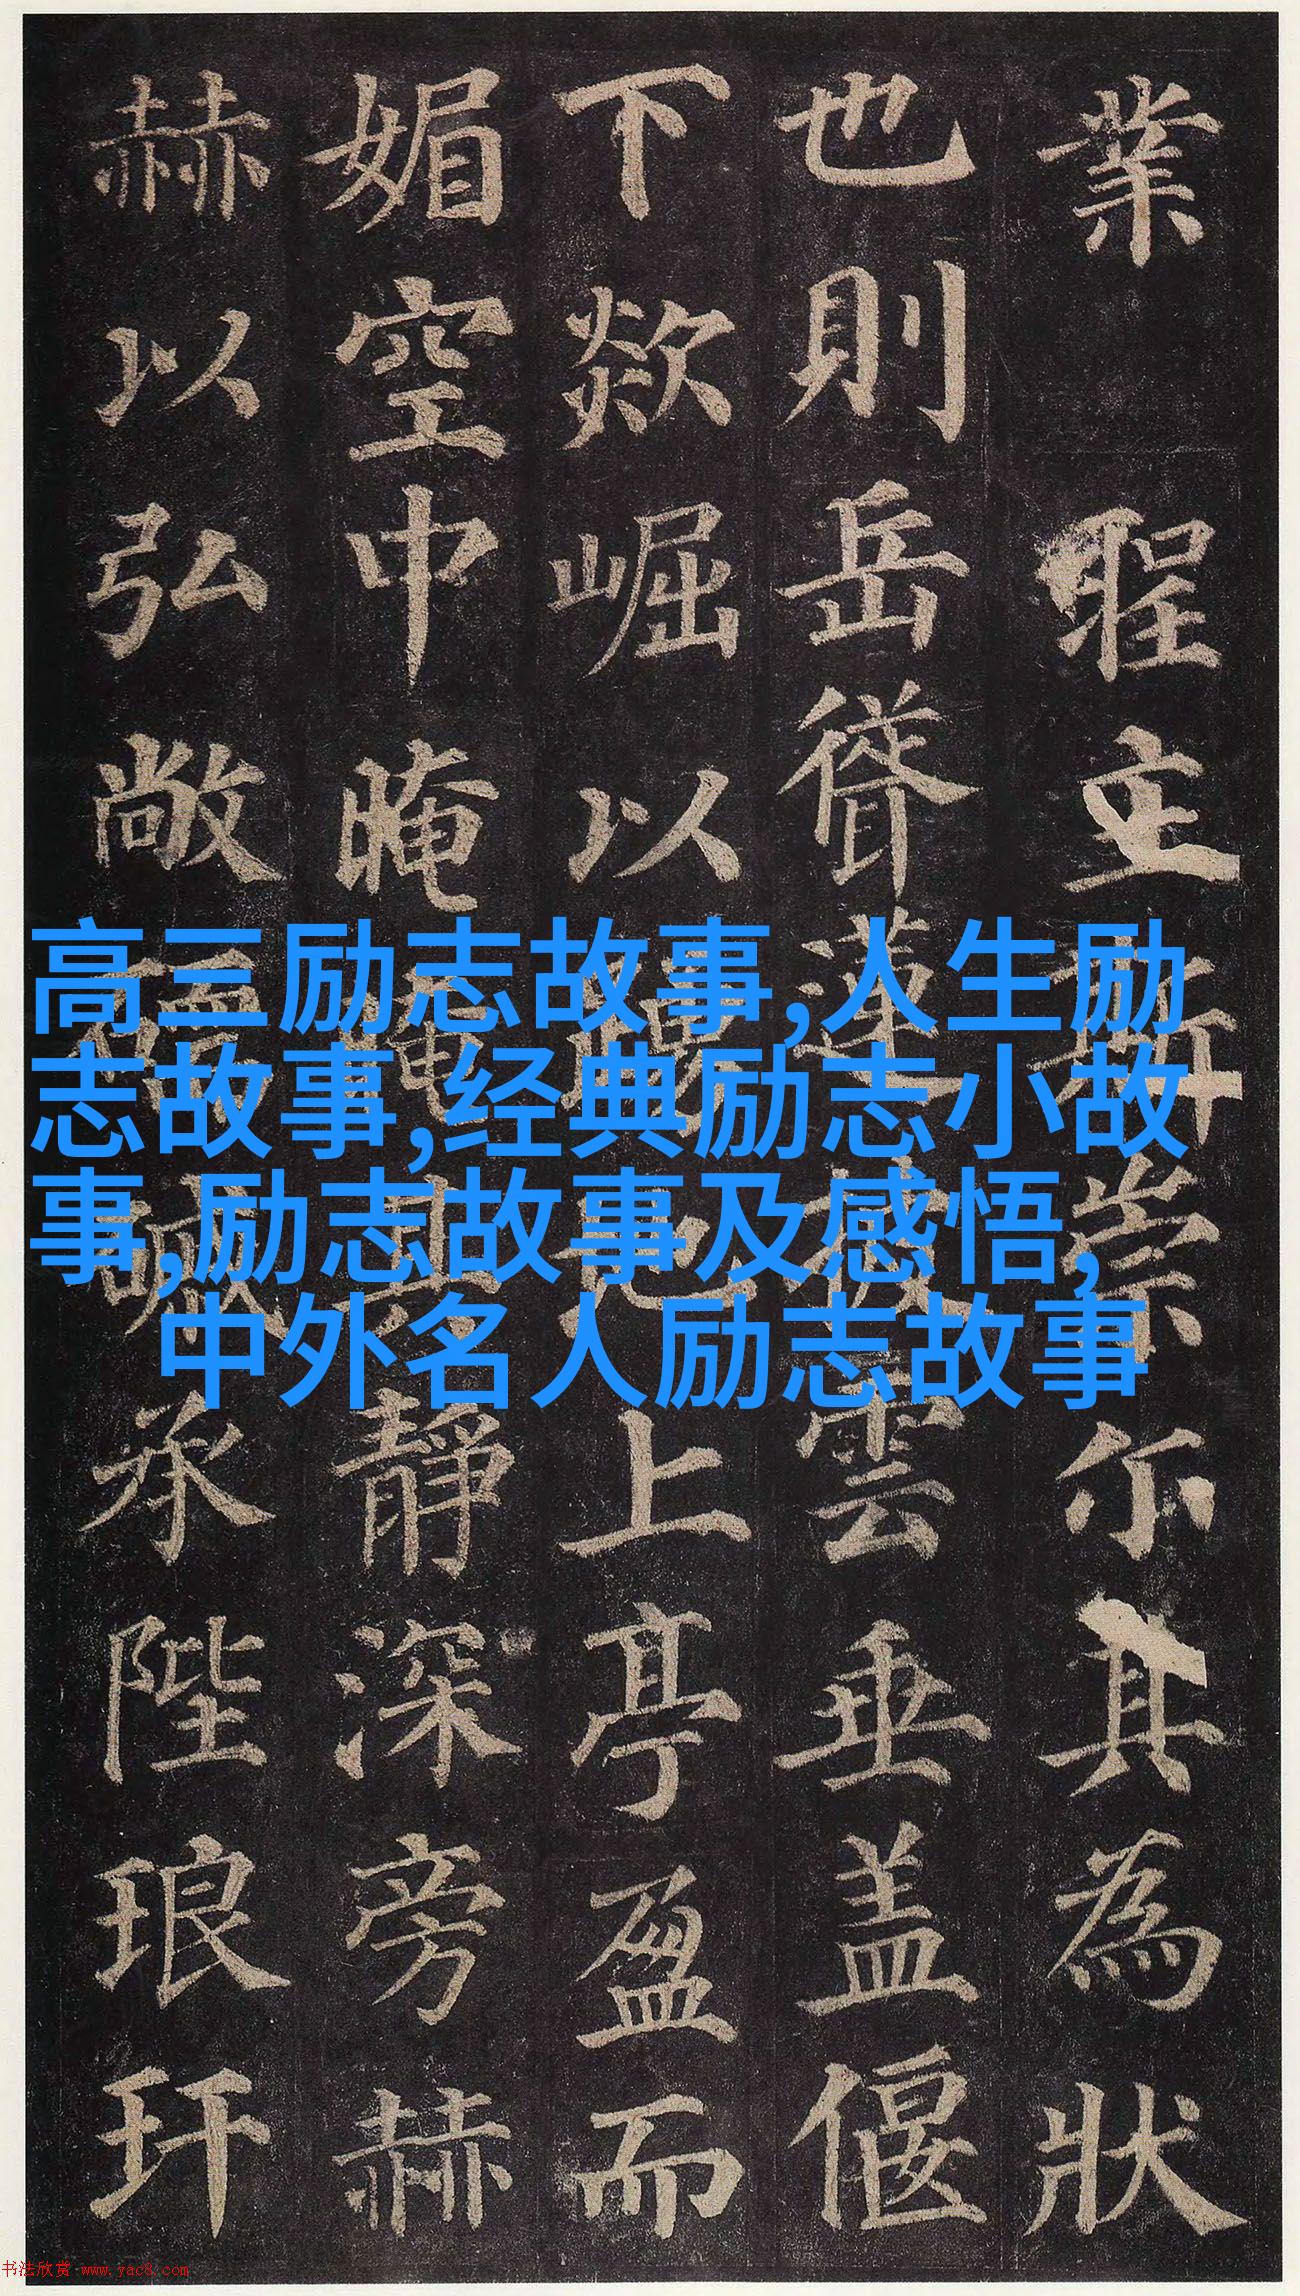 業立斯崇尓其為狀
也則岳聳蓮披雲垂盖偃
下欻崛以地上亭盈而
媚空中晻其靜深旁赫
赫以弘敞承陛琅玕
高三励志故事,人生励
志故事,经典励志小故
事,励志故事及感悟,
中外名人励志故事
书法欣赏 www.yac8.com